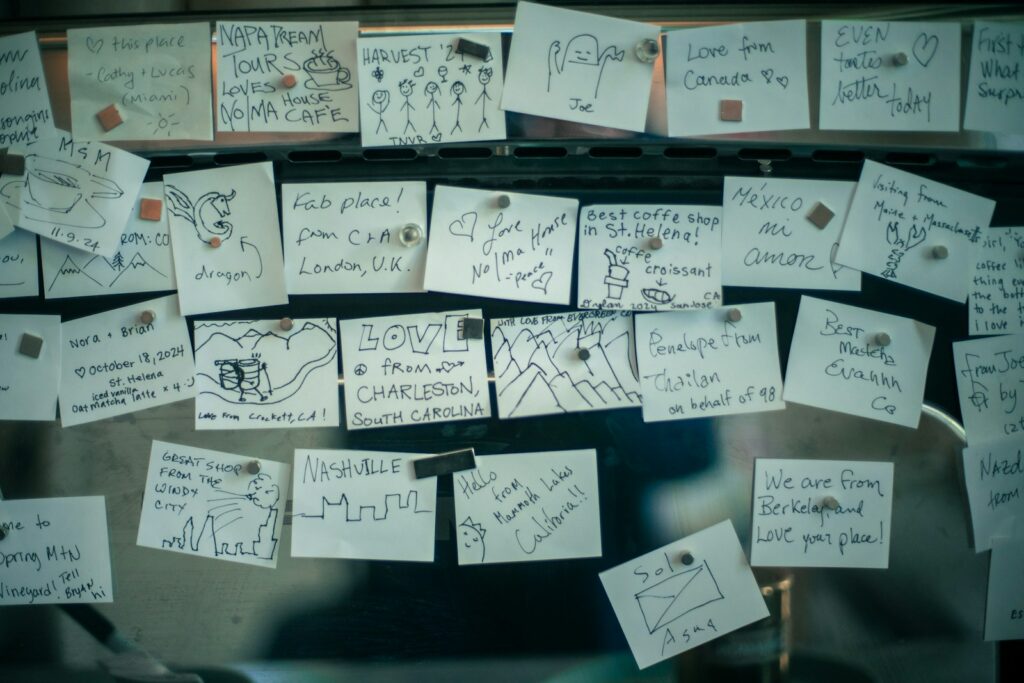 ♡ this place
- Cathy + Lucas
(Miami)
NAPA DREAM
TOURS
LOVES
NO/MA HOUSE
CAFÉ
HARVEST '2
JNVR ♡
JOE
Love from
Canada ♡♡
EVEN
better
TODAY
First
What
Surpr
M&M
11.9.24
ROM: CO
dragon
Fab place!
from C+A
London, U.K.
♡ Love
No/Ma House
"
-peace ♡
Best coffe shop
in St. Helena!
coffe
croissant
2024 San Jose
CA
México
mi
amor
Visiting from
Maine + Massachusetts
coffee
thing eve
the bott
to the
i love
Nora + Brian
♡ October 18, 2024
St. Helena
iced vanilla
oat matcha latte x 4 :)
Love From Crockett, CA!
LOVE
☮ from
CHARLESTON,
SOUTH CAROLINA
WITH LOVE FROM EVERGREEN CO
Penelope from
Thailan
on behalf of 98
Best
Matcha
Evahhh
From Joe
by
GREAT SHOP
FROM THE
WINDY
CITY
NASHVILLE
Hello
from
Mammoth Lakes
California!!
We are from
Berkeley, and
LOVE your place!
NAZD
FROM
me to
Spring Mtn
Vineyard! Tell
Bryan hi
Sol